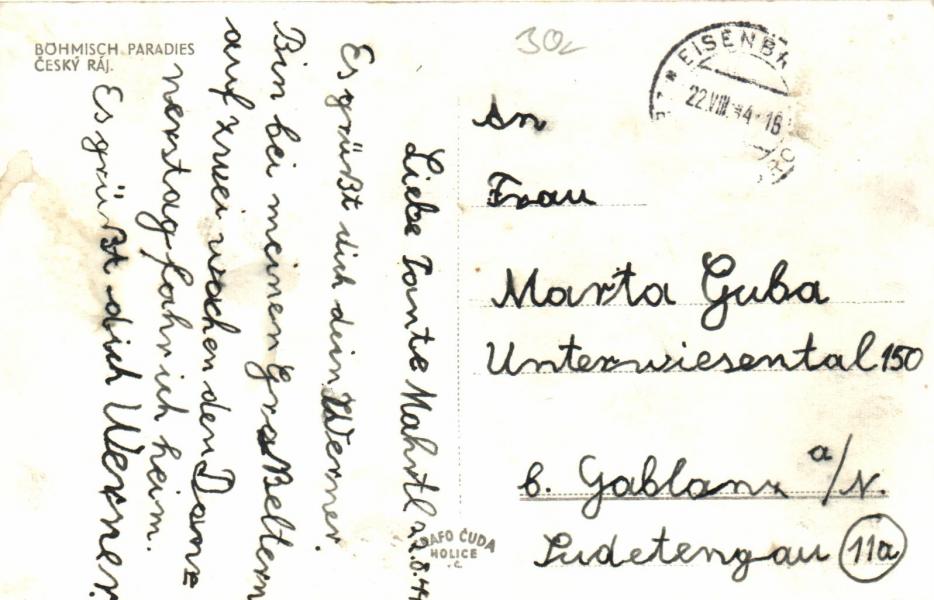 BÖHMISCH PARADIES
ČESKÝ RÁJ.
30
EISENB
22.VIII.44-16
Liebe Tante Mahrtl 22.8.44
Es grüßt dich dein Werner.
Bin bei meinen Großeltern
auf zwei wochen den Donne
nerstag fahr ich heim.
Es grüßt dich Werner.
An
Frau
Marta Guba
Unterwiesental 150
b. Gablonz a/N.
Sudetengau 11a
RAFO ČUDA
HOLICE